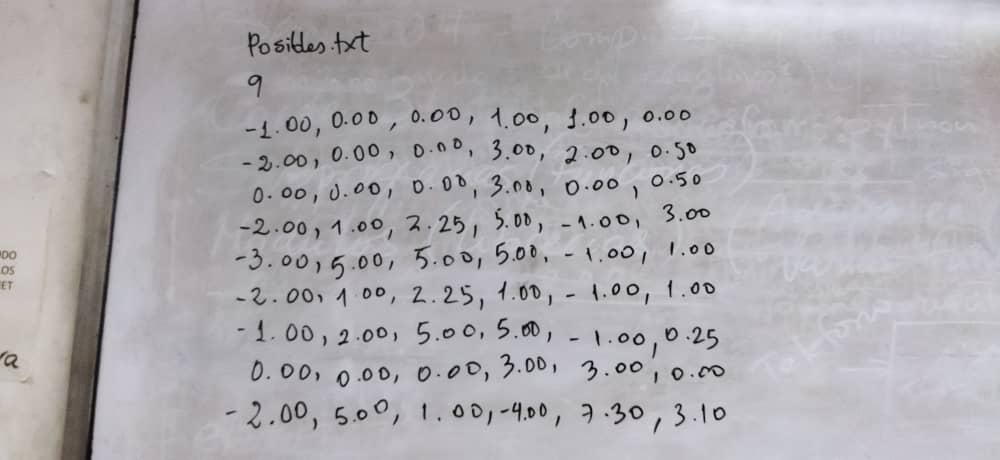 Posibles.txt
9
-1.00, 0.00, 0.00, 1.00, 1.00, 0.00
-2.00, 0.00, 0.00, 3.00, 2.00, 0.50
0.00, 0.00, 0.00, 3.00, 0.00, 0.50
-2.00, 1.00, 2.25, 5.00, -1.00, 3.00
-3.00, 5.00, 5.00, 5.00, -1.00, 1.00
-2.00, 1.00, 2.25, 1.00, -1.00, 1.00
-1.00, 2.00, 5.00, 5.00, -1.00, 0.25
0.00, 0.00, 0.00, 3.00, 3.00, 0.00
-2.00, 5.00, 1.00, -4.00, 7.30, 3.10